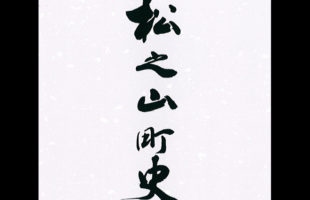 松之山町史